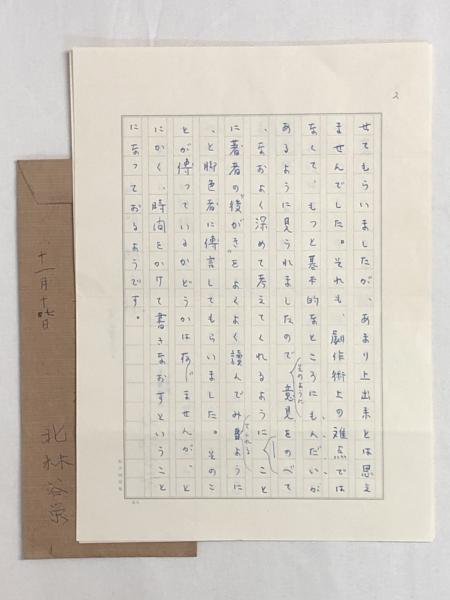 2
せてもらいましたが、あまり上出来とは思え
ませんでした。それも、劇作術上の難点では
なくて、もっと基本的なところにもんだいが
あるように見られましたので そのように 意見をのべて
、なおよく深めて考えてくれるように こと
に著者の“後がき”をよくよく讀んでみ てくれる よように
、と脚色者に傳言してもらいました。そのこ
とが傳っているかどうかは存じませんが、と
にかく、時間をかけて書きなおすということ
になっておるようです。
十一月十七日
北林谷栄